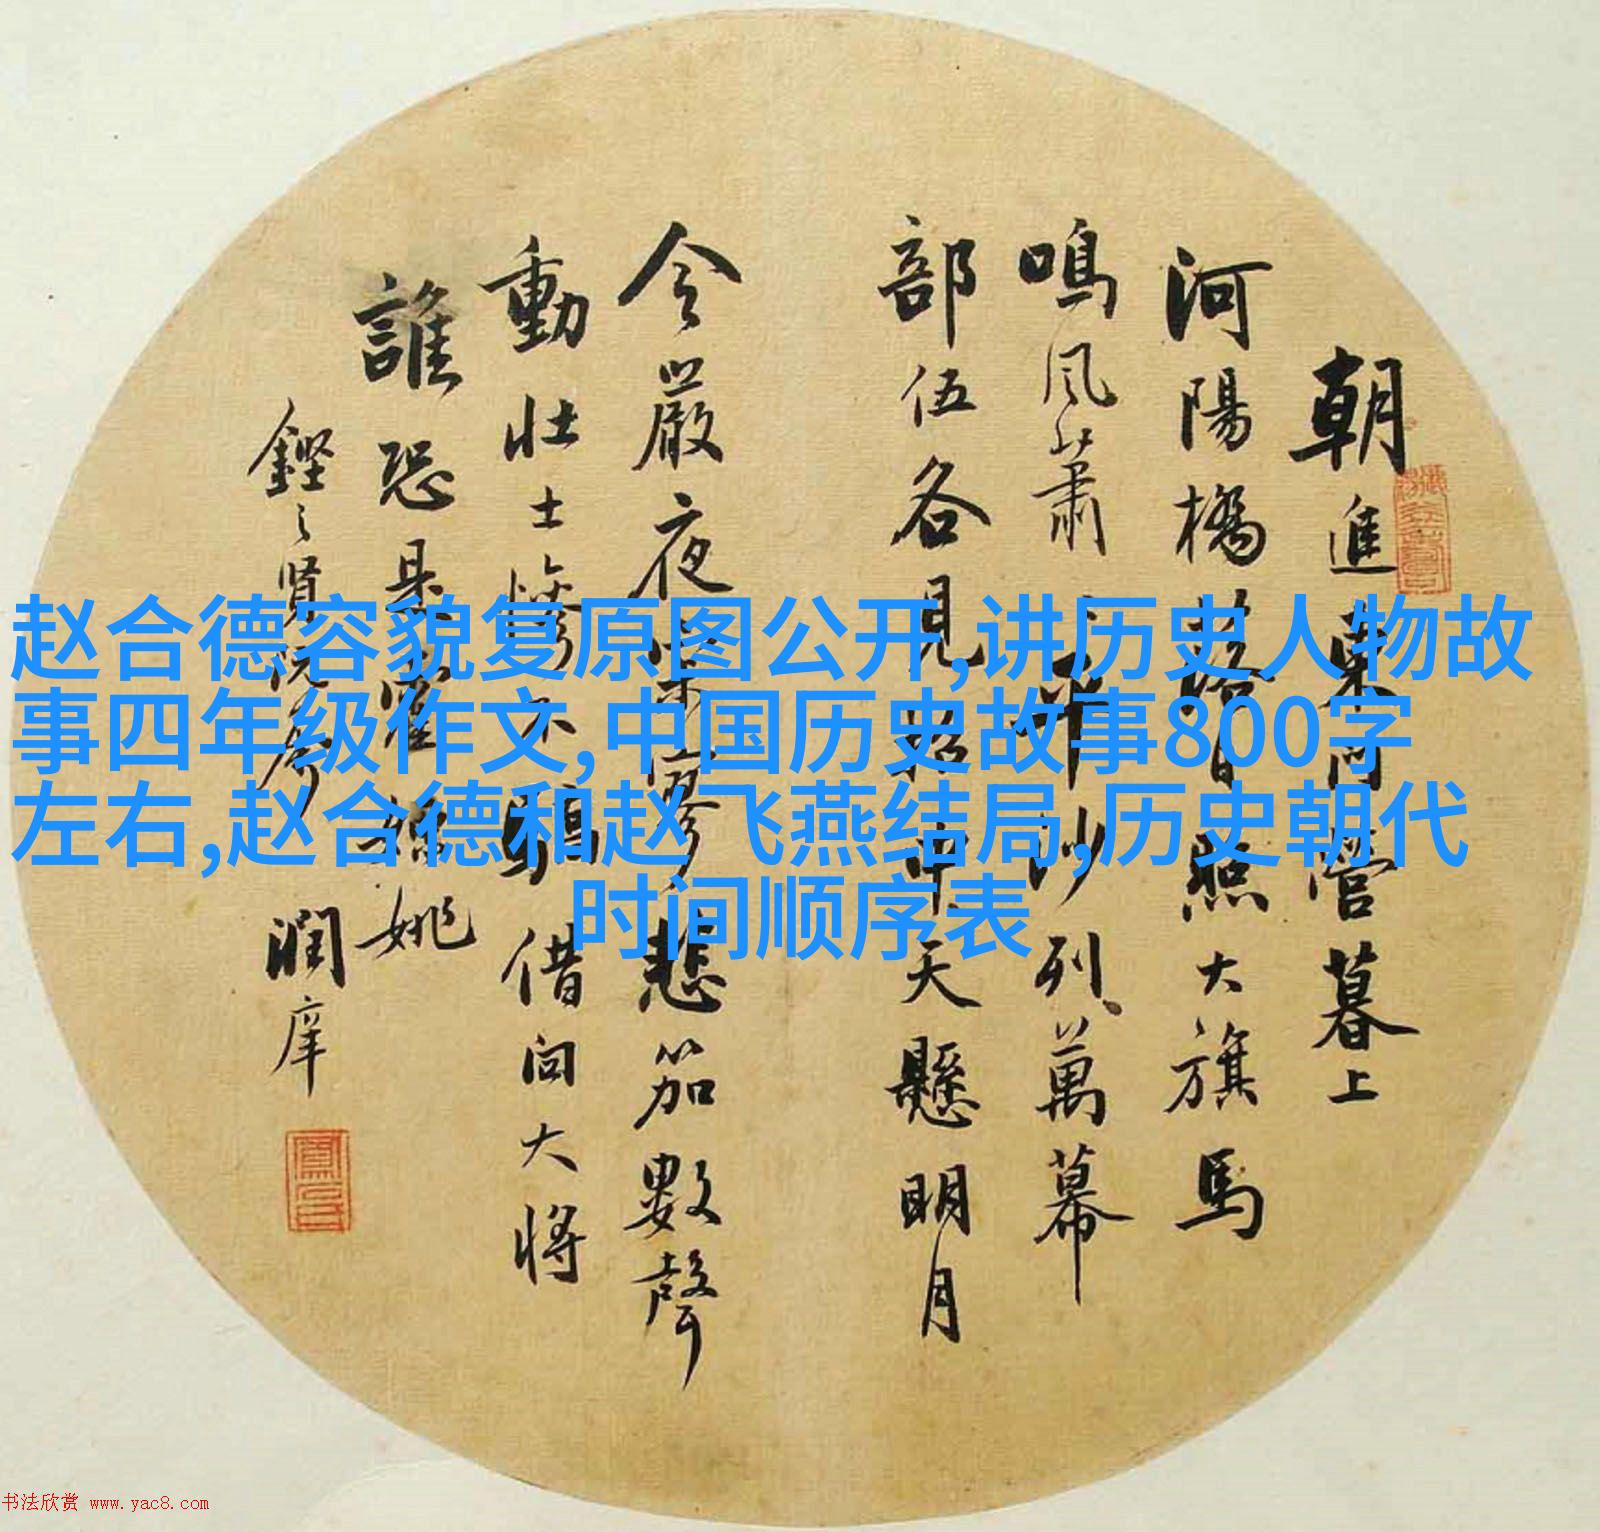 朝進東門營暮上
河陽橋落日照大旗馬
鳴風蕭〻平沙列萬幕
部伍各見招中天懸明月
令嚴夜寂寥悲笳數聲
動壯士慘不驕借问大將
誰恐是霍嫖姚
鏗之賢阮 潤庠
赵合德容貌复原图公开,讲历史人物故
事四年级作文,中国历史故事800字
左右,赵合德和赵飞燕结局,历史朝代
时间顺序表
书法欣赏 www.yac8.com